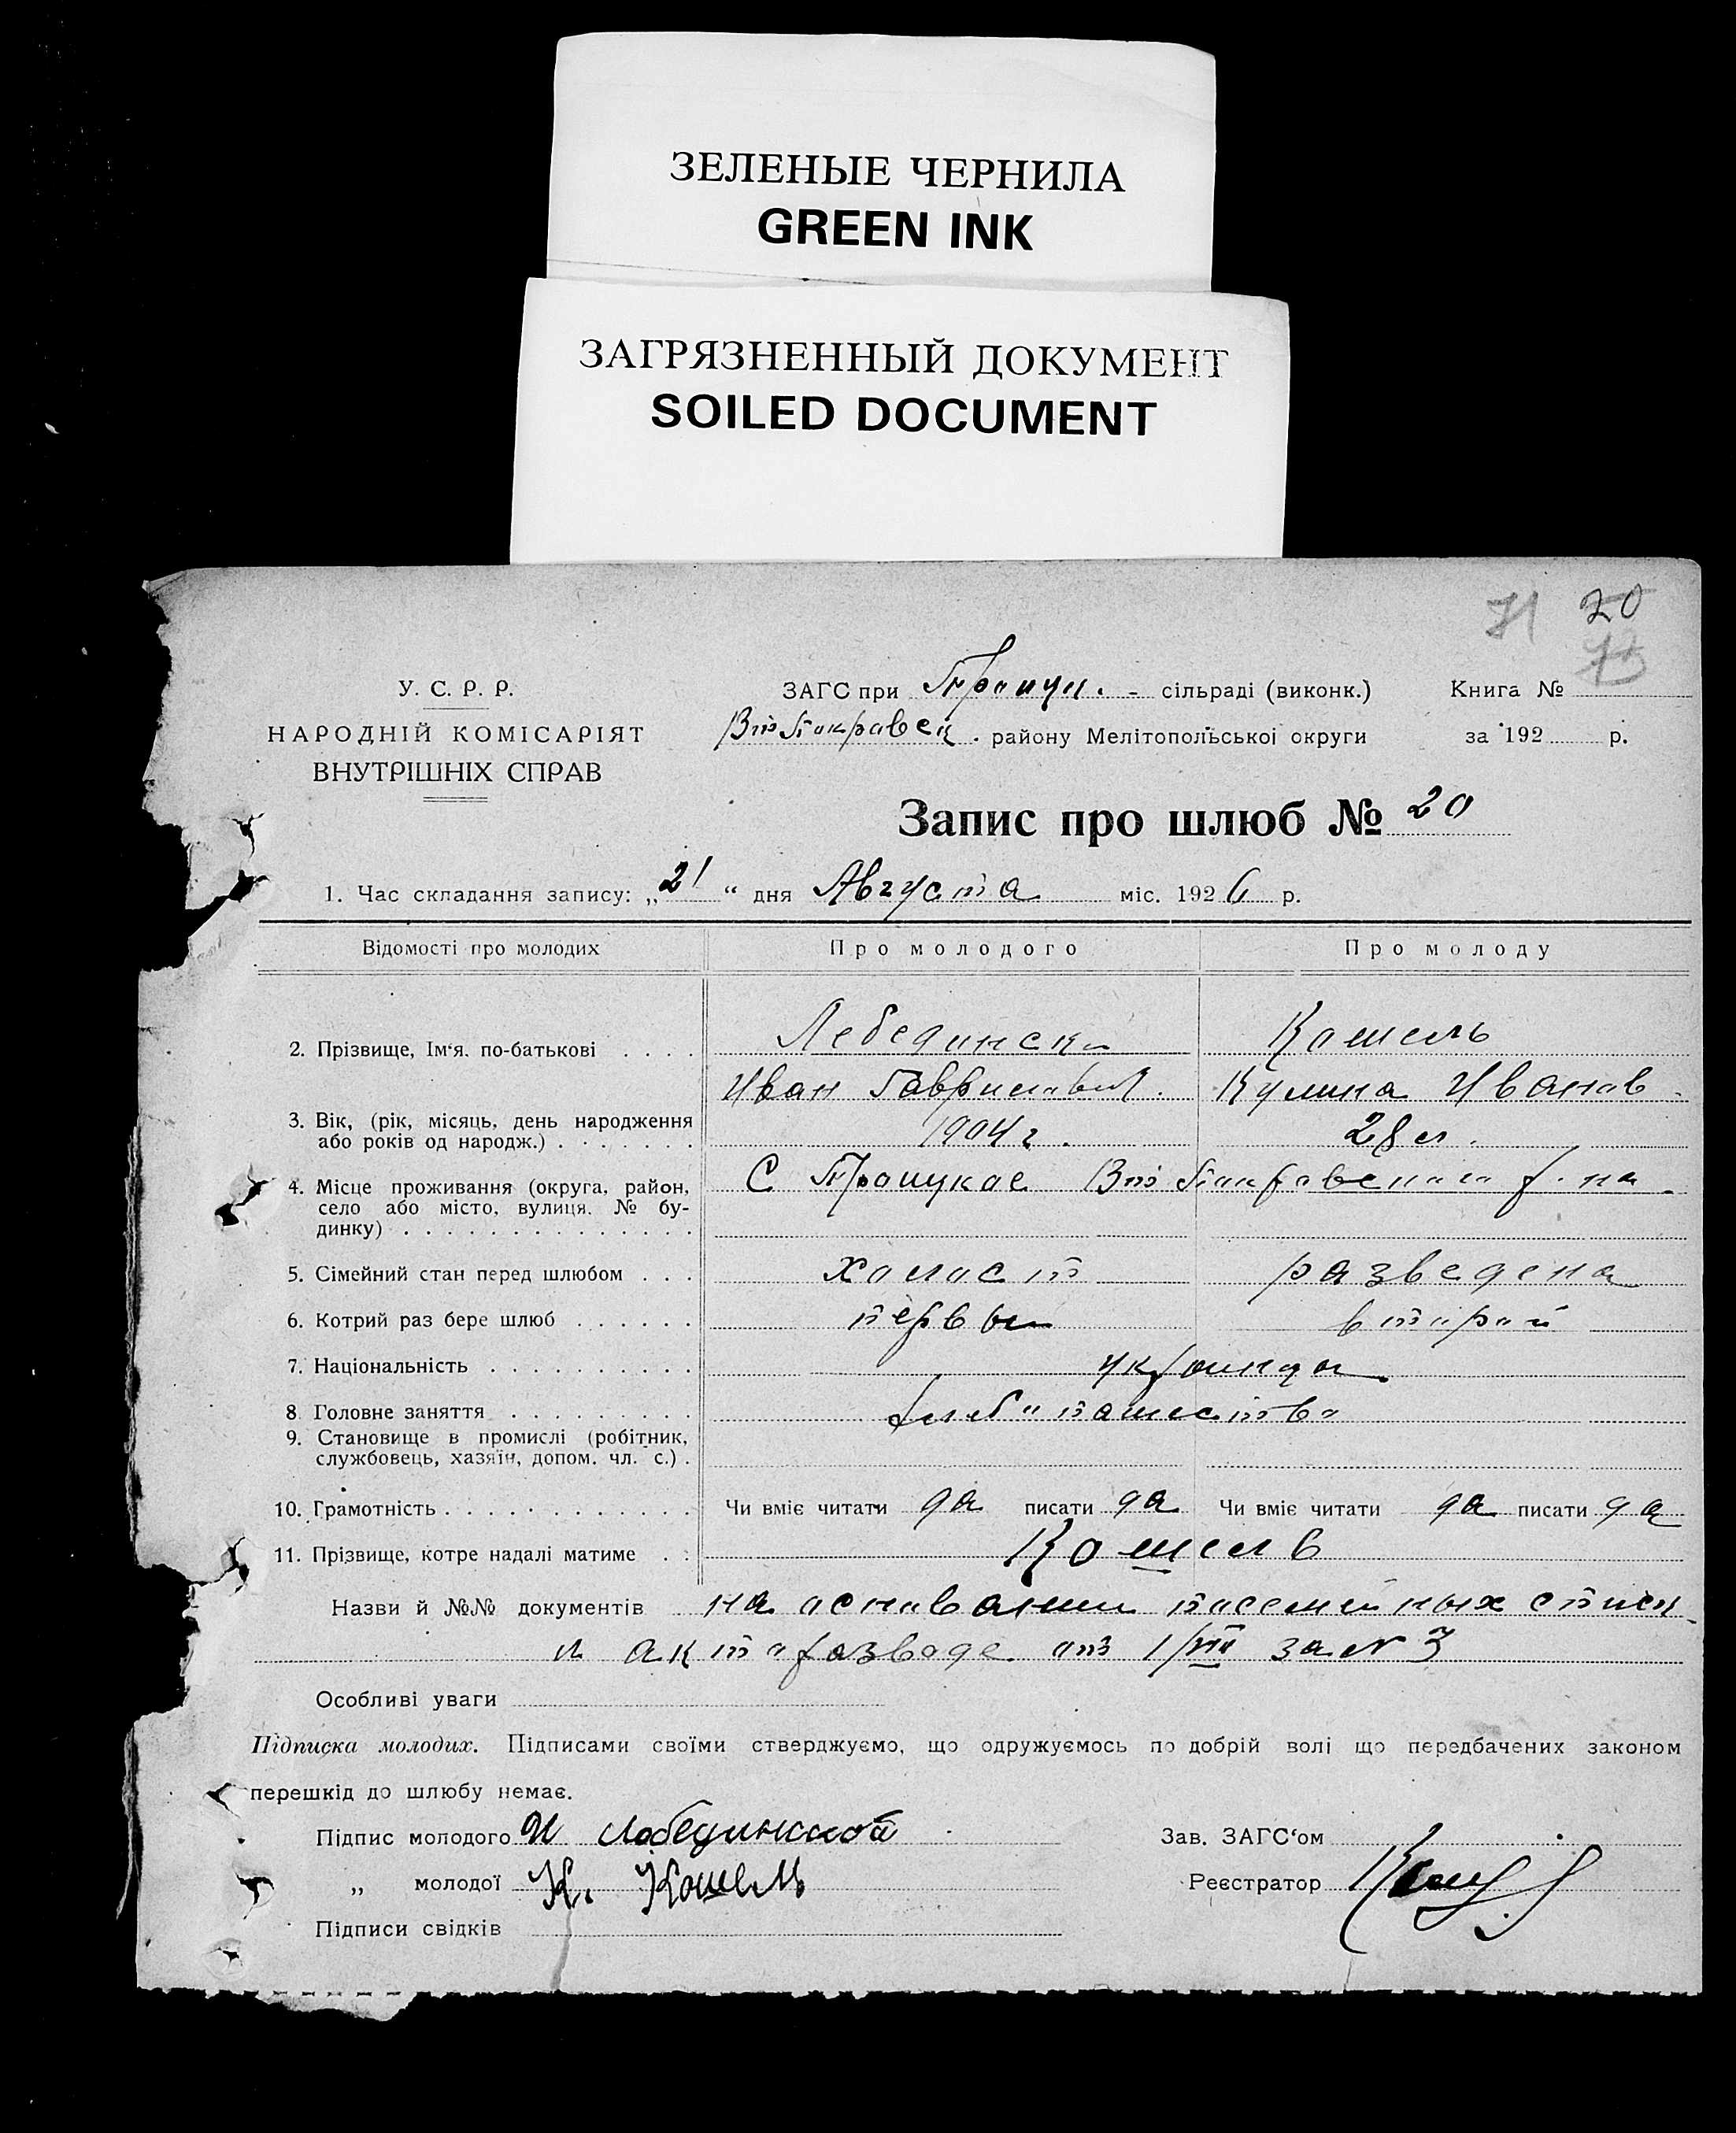 ЗЕЛЕНЫЕ ЧЕРНИЛА
GREEN INK
ЗАГРЯЗНЕННЫЙ ДОКУМЕНТ
SOILED DOCUMENT
71 20
У. С. Р. Р.
НАРОДНІЙ КОМІСАРІЯТ
ВНУТРІШНІХ СПРАВ
ЗАГС при - сільраді (виконк.) Книга №
району Мелітопольської округи за 192 р.
Запис про шлюб № 20
1. Час складання запису: „21“ дня Августа міс. 1926 р.
Відомості про молодих Про молодого Про молоду
2. Прізвище, Ім‘я. по-батькові Лебедински Кошель
Иван Гаврилавич. Кулина Иванав.
3. Вік, (рік, місяць, день народження 1904 г. 28 л.
або років од народж.)
4. Місце проживання (округа, район, С
село або місто, вулиця. № бу-
динку)
5. Сімейний стан перед шлюбом халаст разведена
6. Котрий раз бере шлюб первы втарай
7. Національність
8 Головне заняття
9. Становище в промислі (робітник,
службовець, хазяїн, допом. чл. с.) .
10. Грамотність Чи вміє читати да писати да Чи вміє читати да писати да
11. Прізвище, котре надалі матиме Кошель
Назви й №№ документів на аснавании пасемейных списк
и акта развode от 1/VIII за № 3
Особливі уваги
Підписка молодих. Підписами своїми стверджуємо, що одружуємось по добрій волі що передбачених законом
перешкід до шлюбу немає.
Підпис молодого И Лебединской Зав. ЗАГС‘ом
„ молодої К. Кошель Реєстратор
Підписи свідків